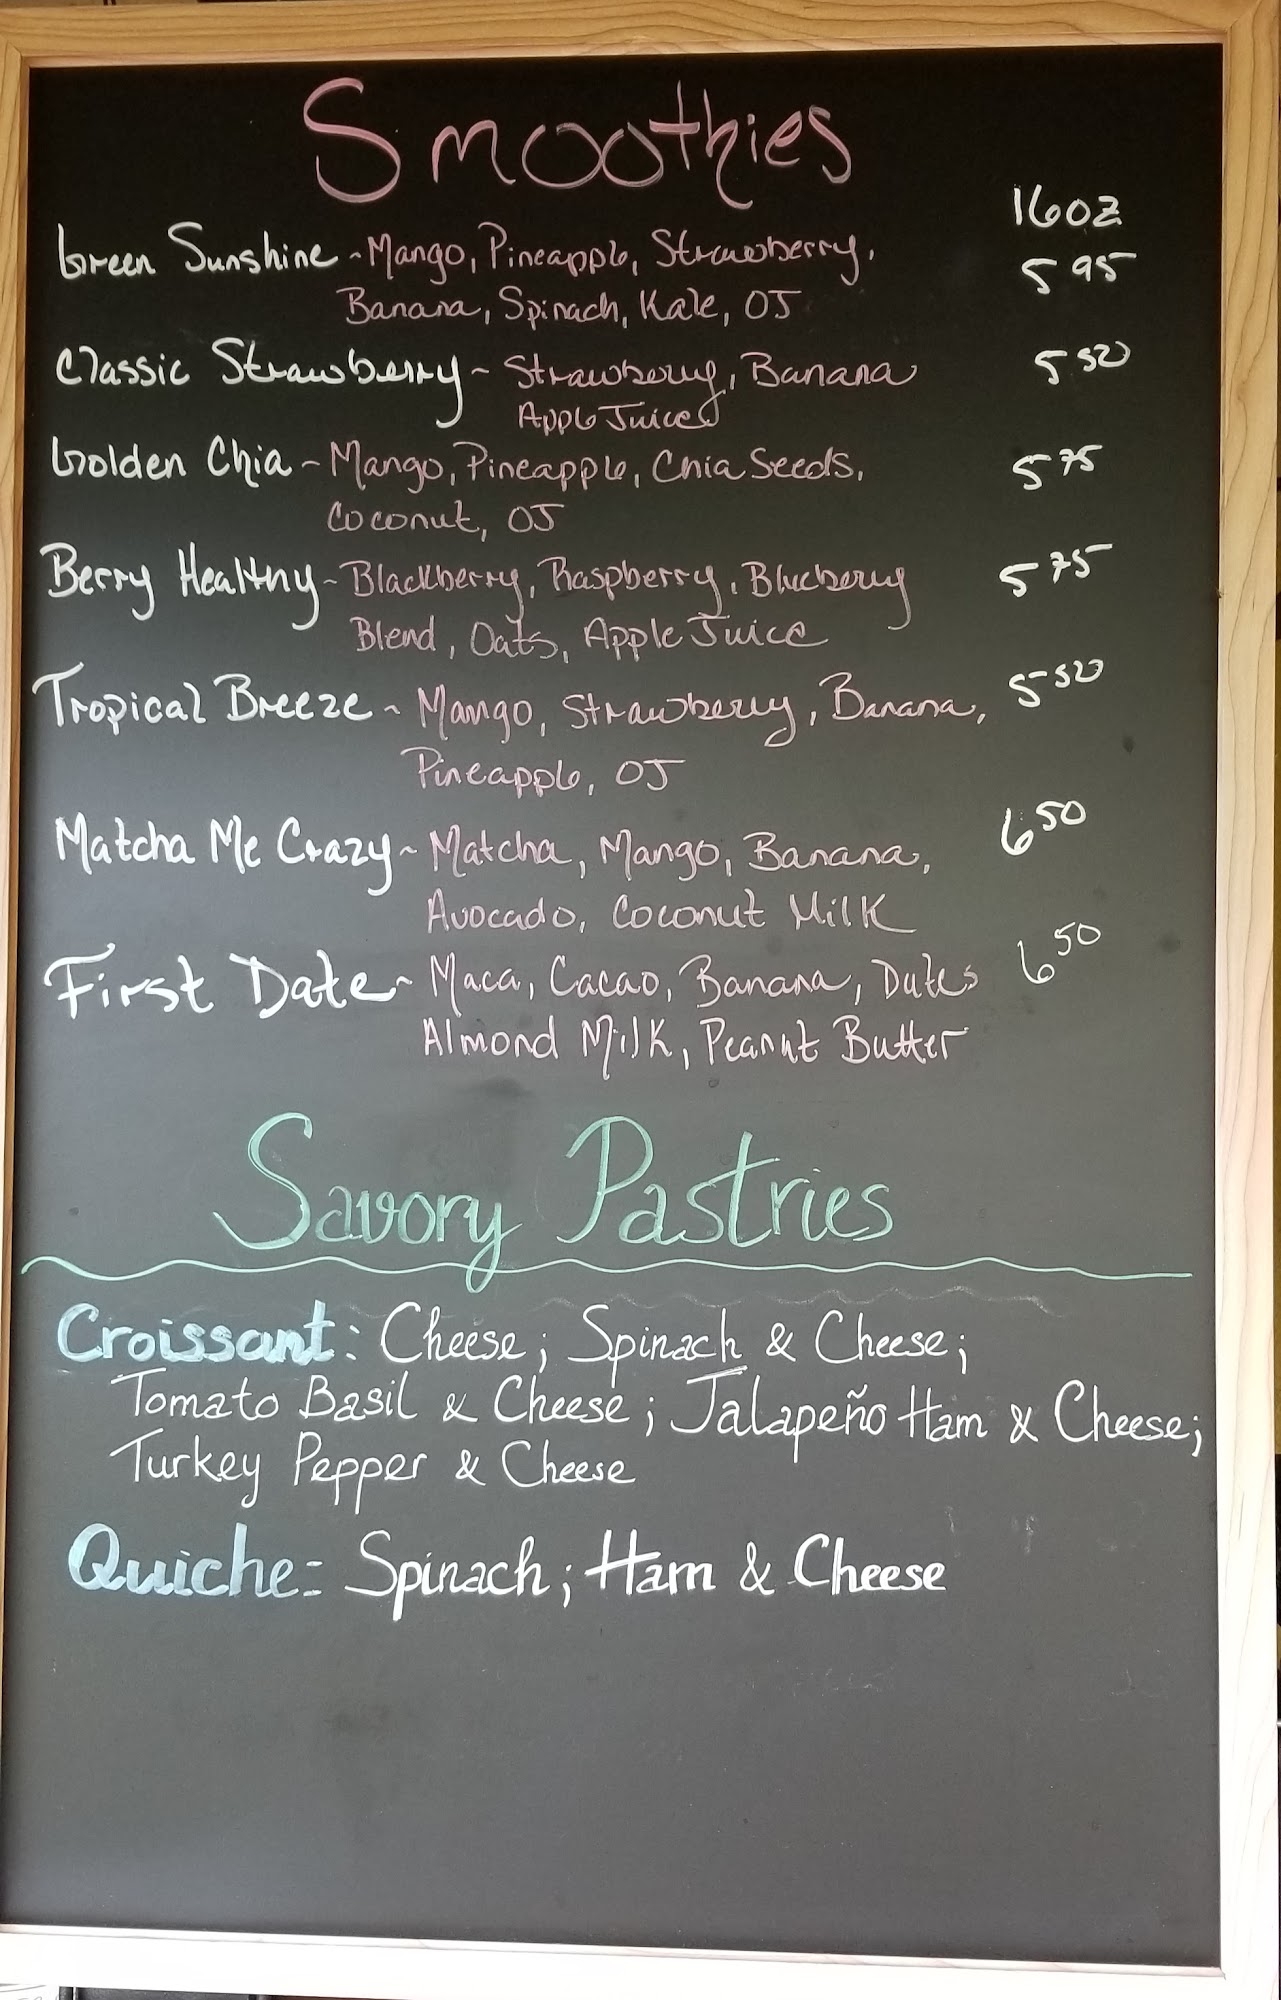 Smoothies
16oz
Green Sunshine ~ Mango, Pineapple, Strawberry, 5 95
Banana, Spinach, Kale, OJ
Classic Strawberry ~ Strawberry, Banana 5 50
Apple Juice
Golden Chia ~ Mango, Pineapple, Chia Seeds, 5 75
Coconut, OJ
Berry Healthy ~ Blackberry, Raspberry, Blueberry 5 75
Blend, Oats, Apple Juice
Tropical Breeze ~ Mango, Strawberry, Banana, 5 50
Pineapple, OJ
Matcha Me Crazy ~ Matcha, Mango, Banana, 6 50
Avocado, Coconut Milk
First Date ~ Maca, Cacao, Banana, Dates 6 50
Almond Milk, Peanut Butter
Savory Pastries
Croissant: Cheese; Spinach & Cheese;
Tomato Basil & Cheese; Jalapeño Ham & Cheese;
Turkey Pepper & Cheese
Quiche: Spinach; Ham & Cheese